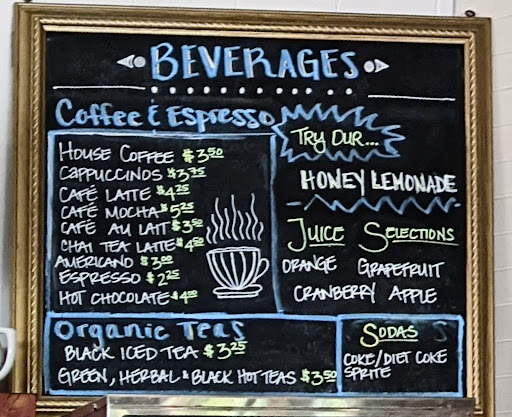 BEVERAGES
Coffee & Espresso
HOUSE COFFEE $3.50
CAPPUCCINOS $3.75
CAFÉ LATTE $4.25
CAFÉ MOCHA $5.25
CAFÉ AU LAIT $3.50
CHAI TEA LATTE $4.50
AMERICANO $3.00
ESPRESSO $2.25
HOT CHOCOLATE $4.00
TRY OUR...
HONEY LEMONADE
JUICE SELECTIONS
ORANGE GRAPEFRUIT
CRANBERRY APPLE
Organic Teas
BLACK ICED TEA $3.25
GREEN, HERBAL & BLACK HOT TEAS $3.50
SODAS
COKE/DIET COKE
SPRITE